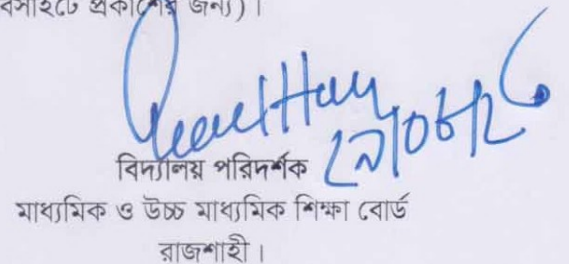 প্রকাশের জন্য)।
বিদ্যালয় পরিদর্শক
মাধ্যমিক ও উচ্চ মাধ্যমিক শিক্ষা বোর্ড
রাজশাহী।